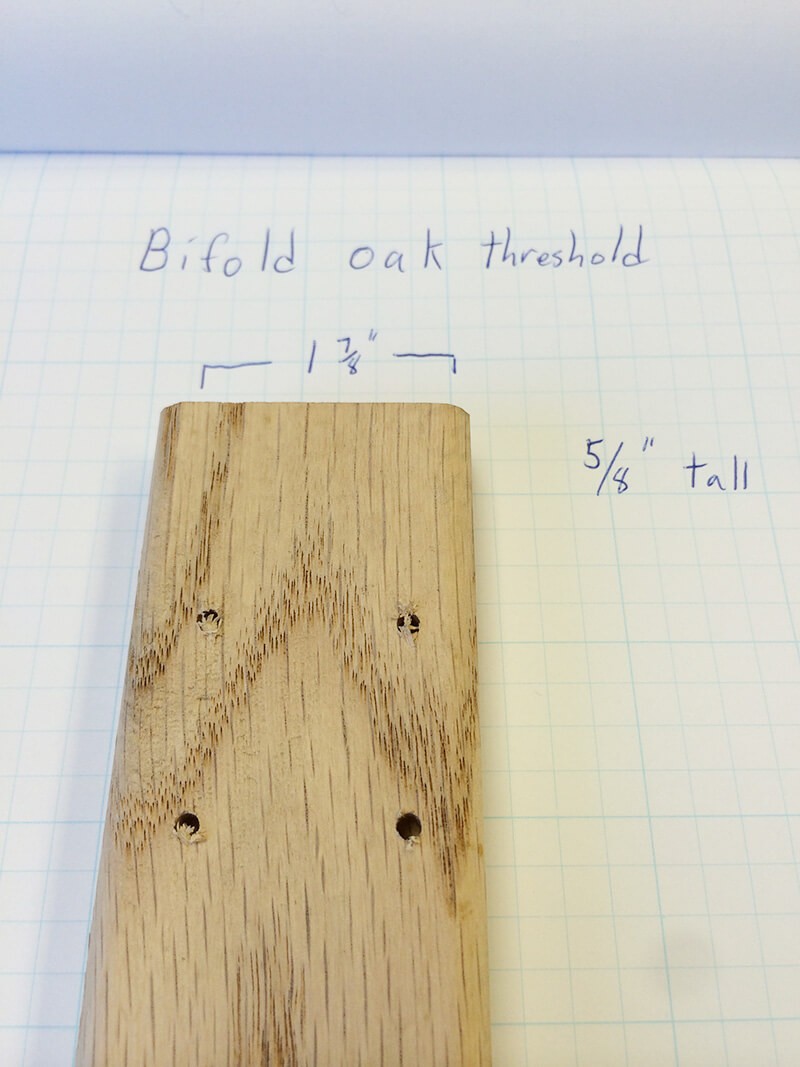 Bifold oak threshold
1 7/8"
5/8" tall